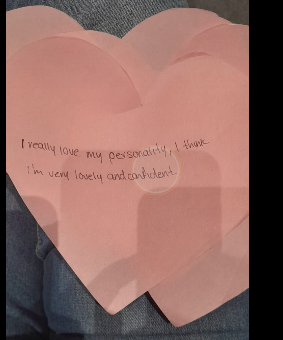 I really love my personality, I think
i'm very lovely and confident